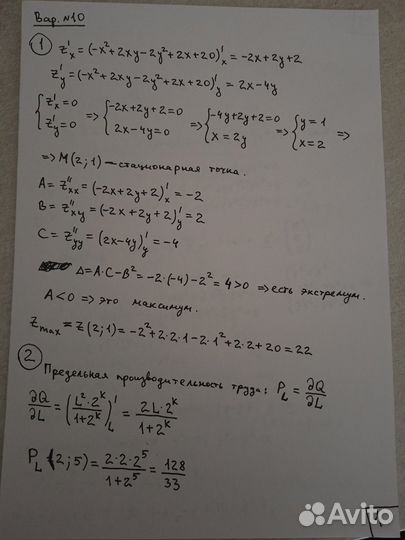 Вар. №10
① z'ₓ = (-x²+2xy-2y²+2x+20)'ₓ = -2x+2y+2
z'ᵧ = (-x²+2xy-2y²+2x+20)'ᵧ = 2x-4y
{z'ₓ=0 => {-2x+2y+2=0 => {-4y+2y+2=0 => {y=1 =>
{z'ᵧ=0 {2x-4y=0 {x=2y {x=2
=> M(2;1) – стационарная точка.
A = z''ₓₓ = (-2x+2y+2)'ₓ = -2
B = z''ₓᵧ = (-2x+2y+2)'ᵧ = 2
C = z''ᵧᵧ = (2x-4y)'ᵧ = -4
Δ=A·C-B² = -2·(-4)-2² = 4>0 => есть экстремум.
A<0 => это максимум.
z_max = z(2;1) = -2²+2·2·1-2·1²+2·2+20 = 22
② Предельная производительность труда: P_L = ∂Q/∂L
∂Q/∂L = (L²·2ᴷ/(1+2ᴷ))'_L = 2L·2ᴷ/(1+2ᴷ)
P_L (2;5) = 2·2·2⁵/(1+2⁵) = 128/33
Avito